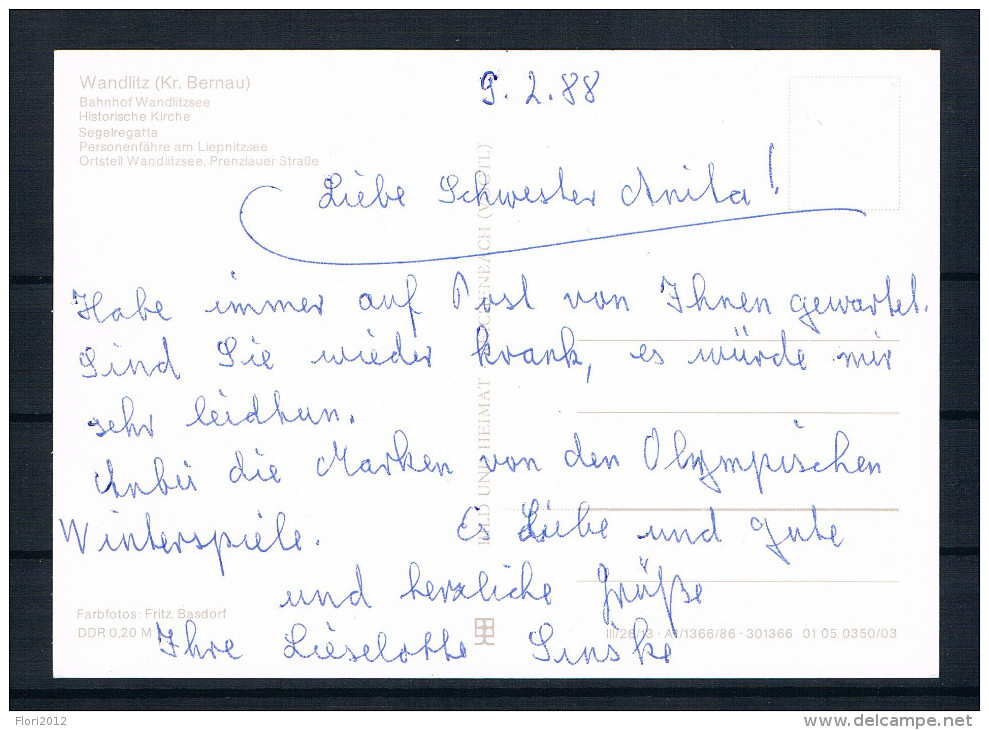 Wandlitz (Kr. Bernau)
Bahnhof Wandlitzsee
Historische Kirche
Segelregatta
Personenfähre am Liepnitzsee
Ortsteil Wandlitzsee, Prenzlauer Straße
9.2.88
Liebe Schwester Anita!
Habe immer auf Post von Ihnen gewartet.
Sind Sie wieder krank, es würde mir
sehr leidtun.
Anbei die Marken von den Olympischen
Winterspiele. Liebe und gute
und herzliche Grüße
Ihre Lieselotte
BILD UND HEIMAT REICHENBACH (VOGTL)
Farbfotos: Fritz, Basdorf
DDR 0,20 M
III/26/13 · A1/1366/86 · 301366 01 05 0350/03
Flori2012
www.delcampe.net